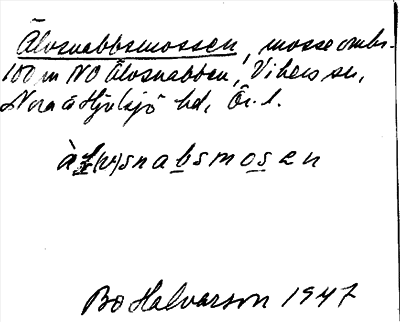 Älvsnabbsmossen, mosse omkr.
100 m NO Älvsnabben, Vikers sn,
Nora o Hjulsjö hd, Ör. l.
Bo Halvarson 1947